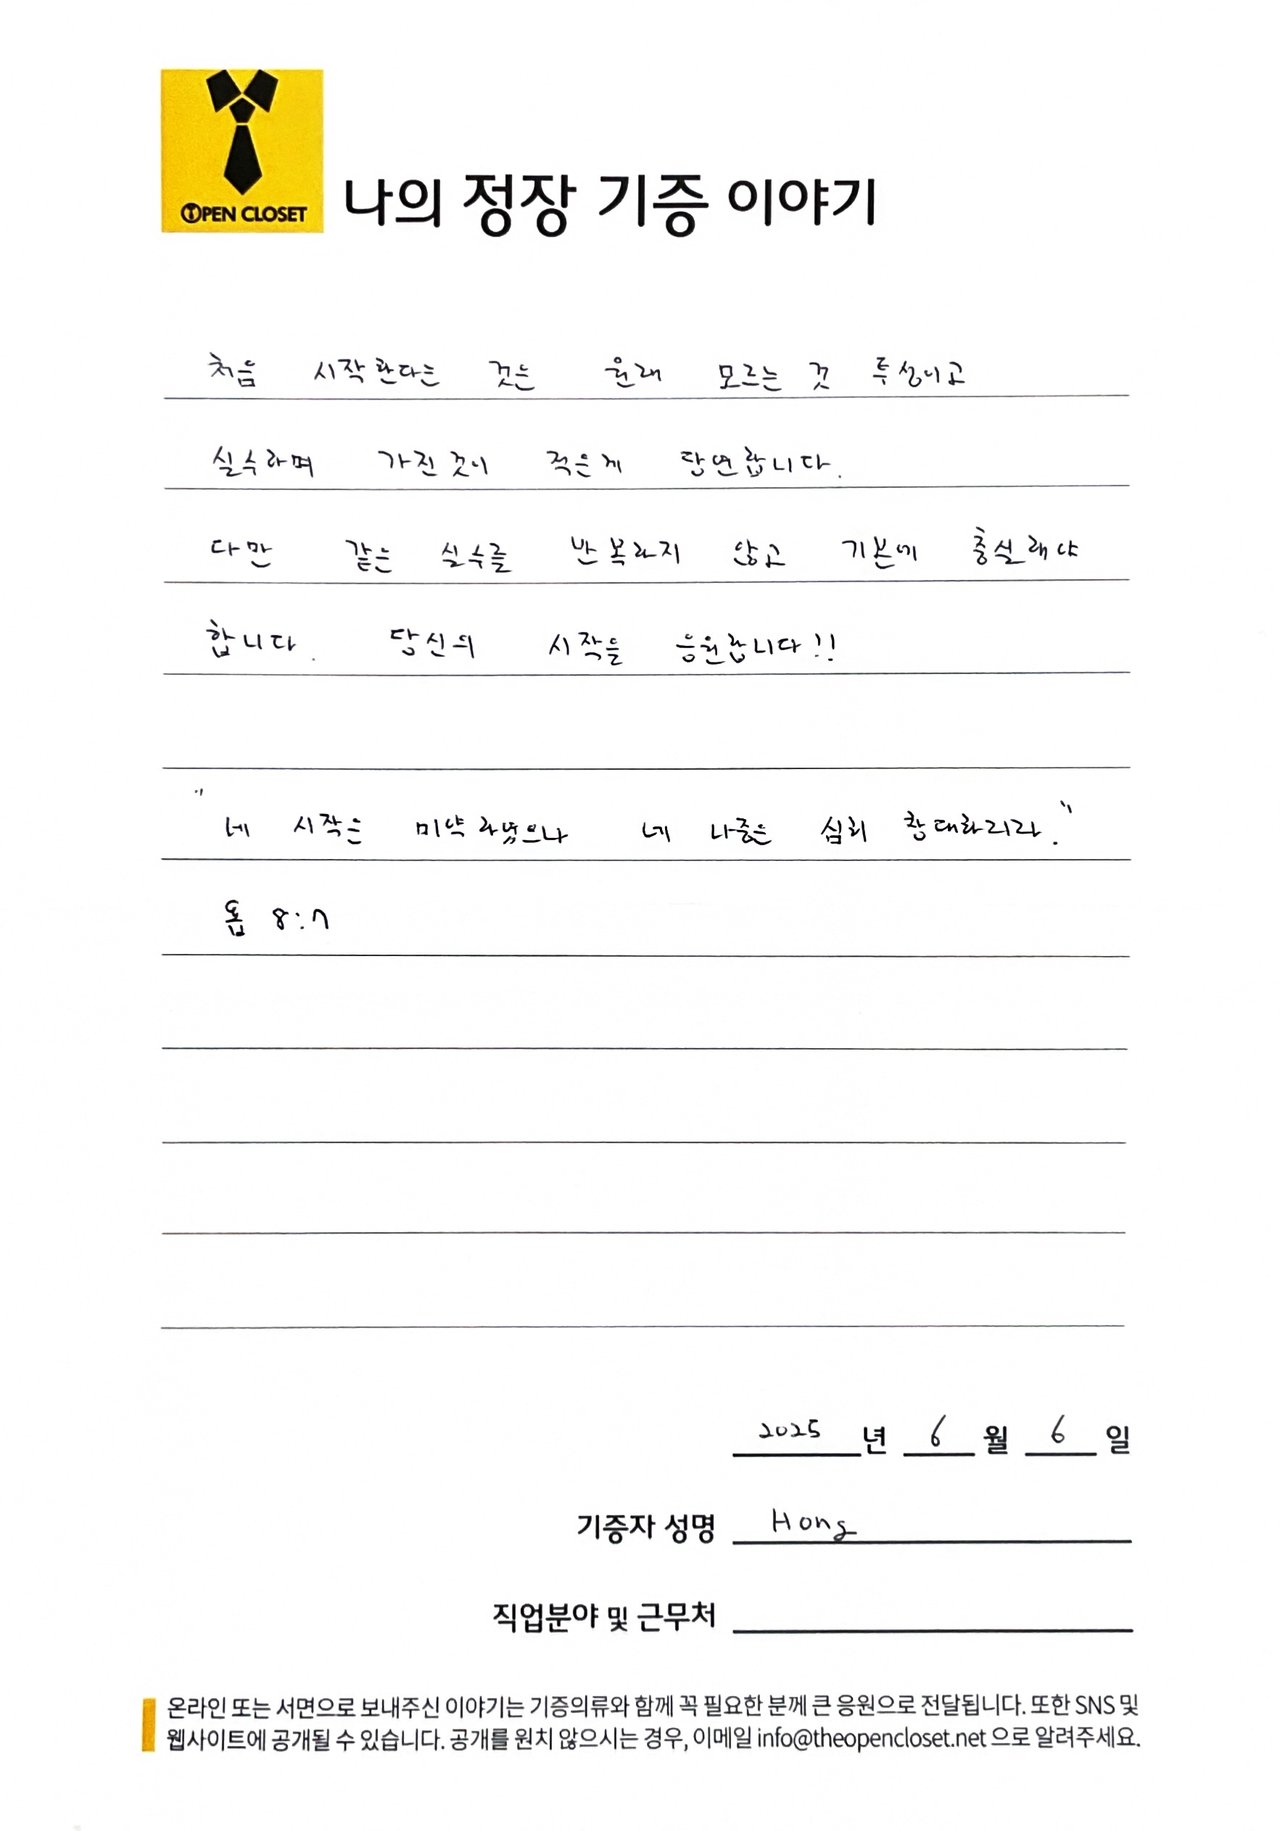 OPEN CLOSET
나의 정장 기증 이야기
처음 시작한다는 것은 원래 모르는 것 투성이고
실수하며 가진것이 적은게 당연합니다.
다만 같은 실수를 반복하지 않고 기본에 충실해야
합니다. 당신의 시작을 응원합니다!!
"네 시작은 미약하였으나 네 나중은 심히 창대하리라."
욥 8:7
2025 년 6 월 6 일
기증자 성명 Hong
직업분야 및 근무처
온라인 또는 서면으로 보내주신 이야기는 기증의류와 함께 꼭 필요한 분께 큰 응원으로 전달됩니다. 또한 SNS 및
웹사이트에 공개될 수 있습니다. 공개를 원치 않으시는 경우, 이메일 info@theopencloset.net 으로 알려주세요.